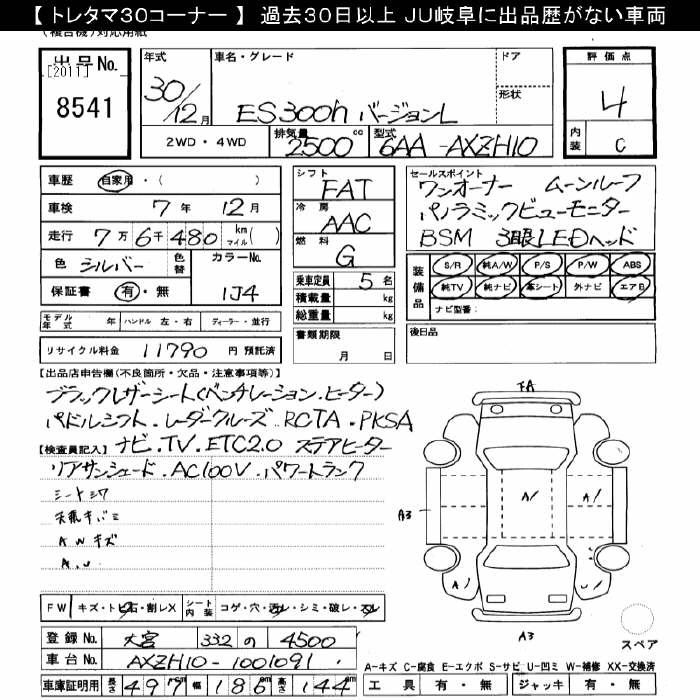 【 トレタマ30コーナー 】 過去30日以上 JU岐阜に出品歴がない車両
(複合機)対応用紙
出品No.
[2011]
8541
年式
30/12月
車名・グレード
ES300h バージョンL
ドア
形状
評価点
4
内装
C
2WD ・ 4WD
排気量
2500 cc
型式
6AA-AXZH10
車歴 自家用 ・( )
車検 7年 12月
走行 7万6千480 km マイル( )
色 シルバー
色替
カラーNo.
1J4
保証書 有・無
シフト
FAT
冷房
AAC
燃料
G
乗車定員 5名
積載量 kg
総重量 kg
書類期限
月 日
セールスポイント
ワンオーナー ムーンルーフ
パノラミックビューモニター
BSM 3眼LEDヘッド
装備品
S/R 純A/W P/S P/W ABS
純TV 純ナビ 革シート 外ナビ エアB
ナビ型番:
後日品
モデル年式 年 ハンドル 左・右 ディーラー・並行
リサイクル料金 11790 円 預託済
【出品店申告欄(不良箇所・欠品・注意事項等)】
ブラックレザーシート(ベンチレーション・ヒーター)
パドルシフト・レーダークルーズ・RCTA・PKSA
【検査員記入】 ナビ・TV・ETC2.0 ステアヒーター
リアサンシェード・AC100V・パワートランク
シートシワ
天張キバミ
AWキズ
A.U
FW キズ・トビ石・割レX
シート内装 コゲ・穴・汚レ・シミ・破レ・スレ
登録No. 大宮 332 の 4500
車台No. AXZH10-1001091
車庫証明用 長さ 497 cm 幅 186 cm 高さ 144 cm
A3
A/
A/
A/
A3
スペア
A-キズ C-腐食 E-エクボ S-サビ U-凹ミ W-補修 XX-交換済
工具 有・無 ジャッキ 有・無